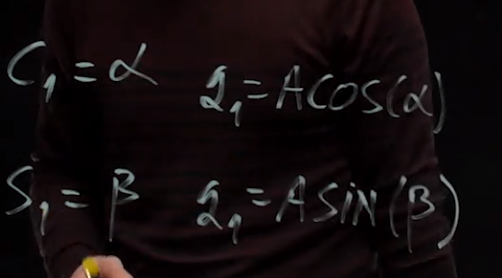 C₁ = α   q₁ = A cos(α)
S₁ = β   q₁ = A sin(β)